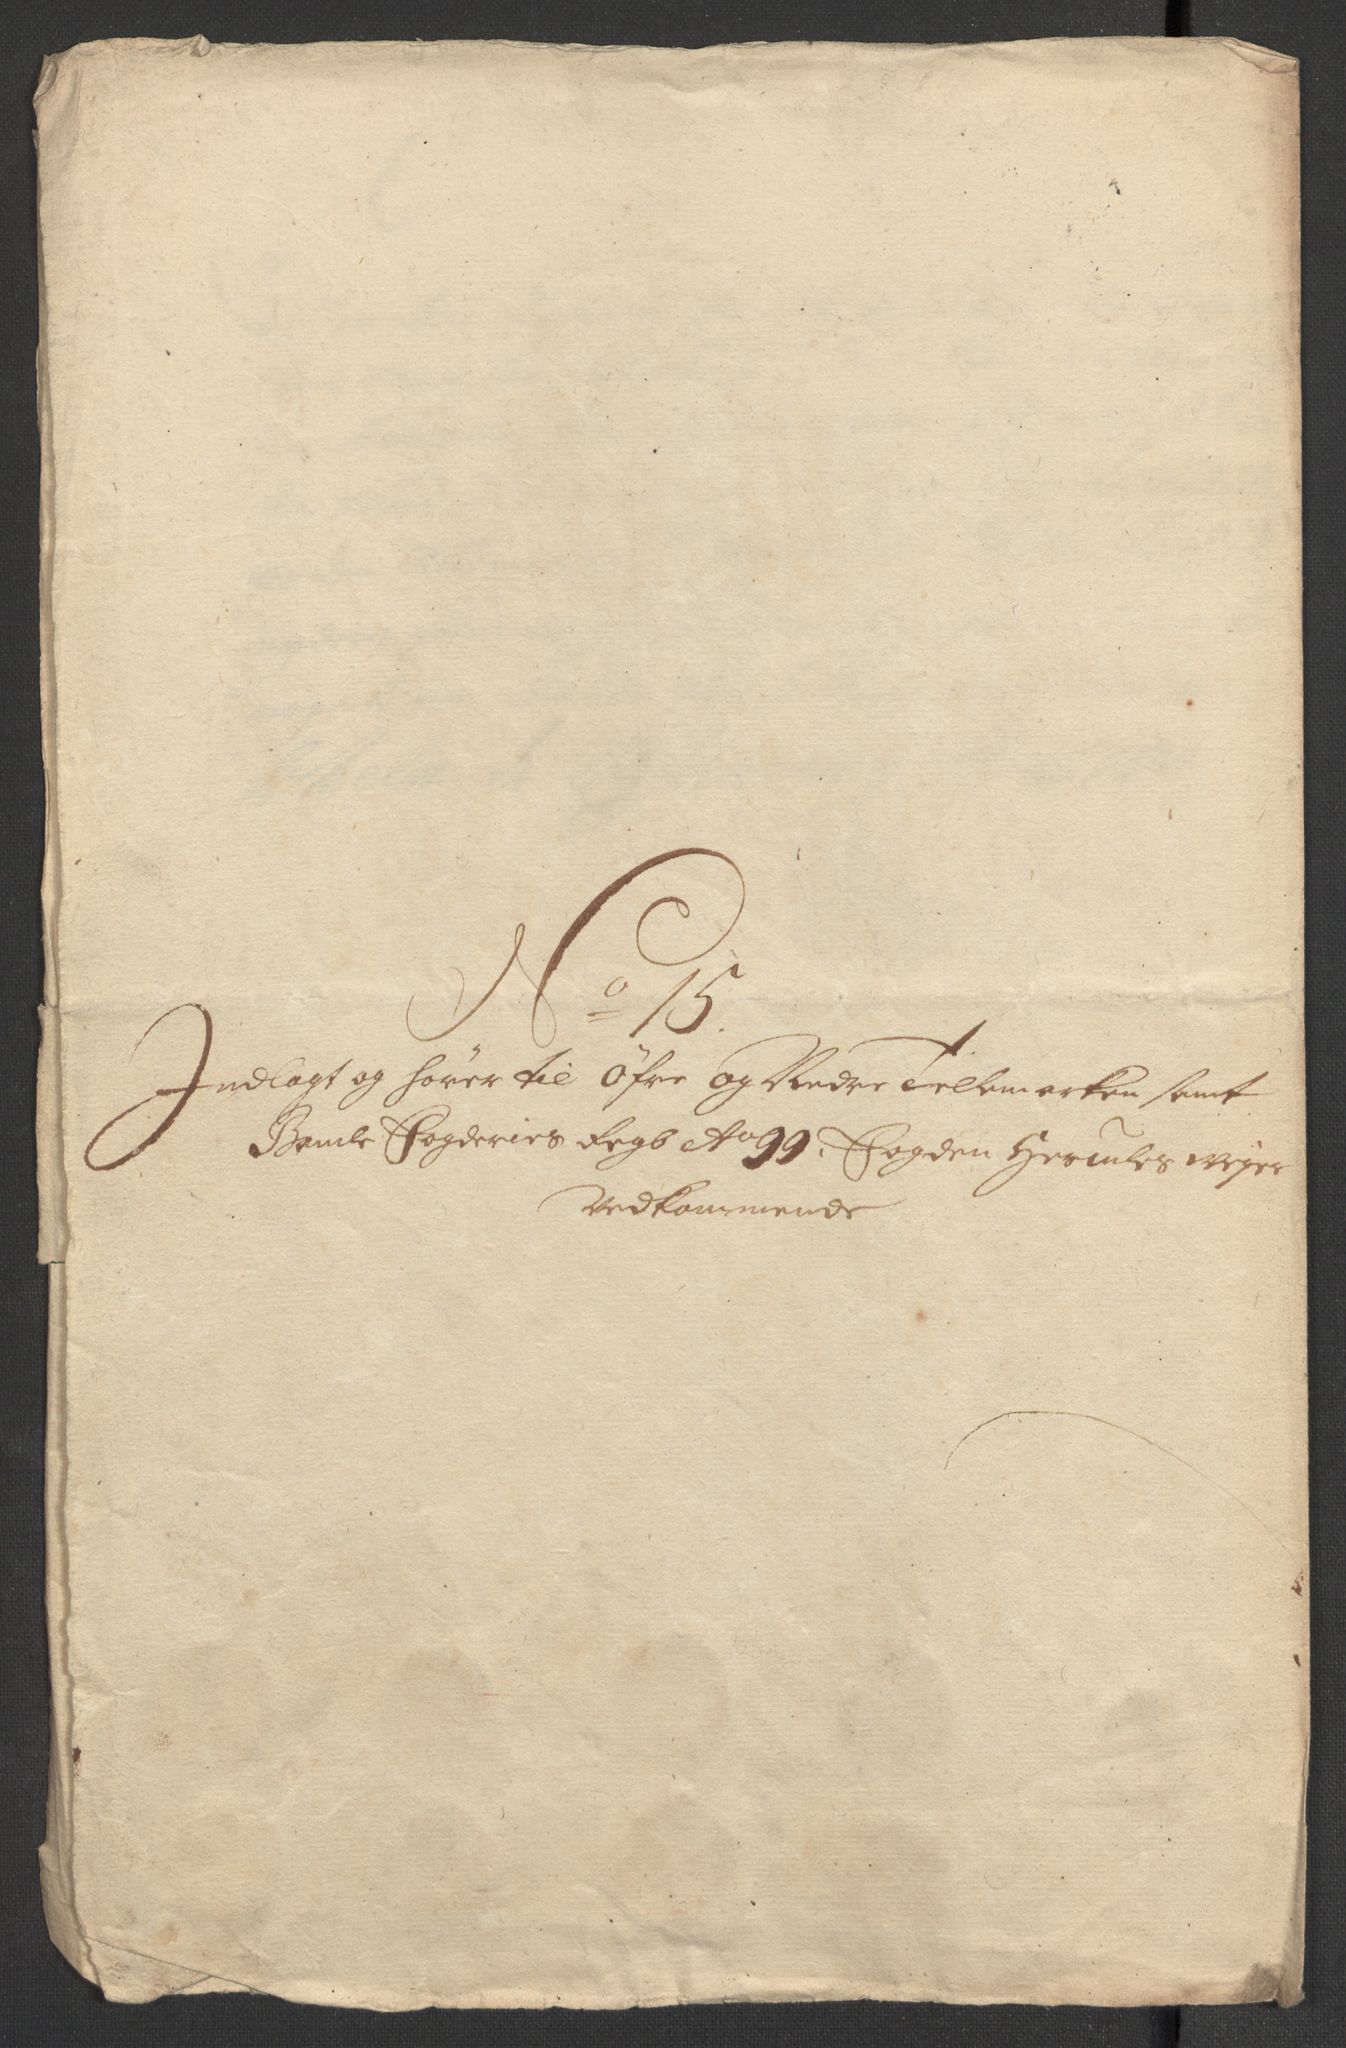 No 15.
Indlagt og hører til Øfre og Nedre Tellemarken samt
Bamle Fogderies Regb Ao 99. Fogden Hercules Wejer
Vedkommende